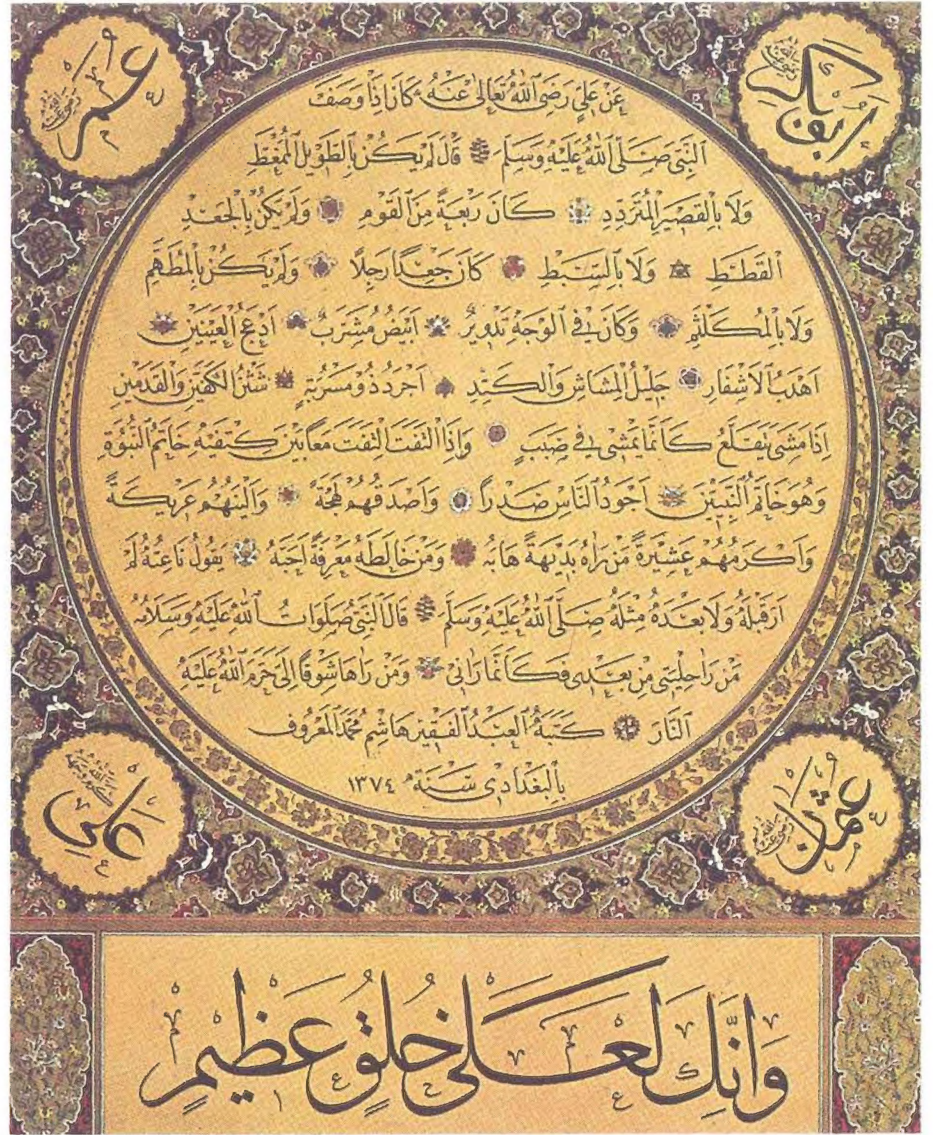 ابو بكر رضي الله عنه
عمر رضي الله عنه
عَنْ عَلِيٍّ رَضِيَ اللّٰهُ تَعَالٰى عَنْهُ كَانَ اِذَا وَصَفَ
النَّبِيَّ صَلَّى اللّٰهُ عَلَيْهِ وَسَلَّمَ قَالَ لَمْ يَكُنْ بِالطَّوِيلِ الْمُمَّغِطِ
وَلَا بِالْقَصِيرِ الْمُتَرَدِّدِ كَانَ رَبْعَةً مِنَ الْقَوْمِ وَلَمْ يَكُنْ بِالْجَعْدِ
الْقَطَطِ وَلَا بِالسَّبِطِ كَانَ جَعْدًا رَجِلًا وَلَمْ يَكُنْ بِالْمُطَهَّمِ
وَلَا بِالْمُكَلْثَمِ وَكَانَ فِي الْوَجْهِ تَدْوِيرٌ اَبْيَضُ مُشْرَبٌ اَدْعَجُ الْعَيْنَيْنِ
اَهْدَبُ الْاَشْفَارِ جَلِيلُ الْمُشَاشِ وَالْكَتَدِ اَجْرَدُ ذُو مَسْرُبَةٍ شَثْنُ الْكَفَّيْنِ وَالْقَدَمَيْنِ
اِذَا مَشٰى يَتَقَلَّعُ كَاَنَّمَا يَمْشِي فِي صَبَبٍ وَاِذَا الْتَفَتَ الْتَفَتَ مَعًا بَيْنَ كَتِفَيْهِ خَاتَمُ النُّبُوَّةِ
وَهُوَ خَاتَمُ النَّبِيِّينَ اَجْوَدُ النَّاسِ صَدْرًا وَاَصْدَقُهُمْ لَهْجَةً وَاَلْيَنُهُمْ عَرِيكَةً
وَاَكْرَمُهُمْ عَشِيرَةً مَنْ رَاٰهُ بَدِيهَةً هَابَهُ وَمَنْ خَالَطَهُ مَعْرِفَةً اَحَبَّهُ يَقُولُ نَاعِتُهُ لَمْ
اَرَ قَبْلَهُ وَلَا بَعْدَهُ مِثْلَهُ صَلَّى اللّٰهُ عَلَيْهِ وَسَلَّمَ قَالَ النَّبِيُّ صَلَوَاتُ اللّٰهِ عَلَيْهِ وَسَلَامُهُ
مَنْ رَاٰ حِلْيَتِي مِنْ بَعْدِي فَكَاَنَّمَا رَاٰنِي وَمَنْ رَاٰهَا شَوْقًا اِلَيَّ حَرَّمَ اللّٰهُ عَلَيْهِ
النَّارَ كَتَبَهُ الْعَبْدُ الْفَقِيرُ هَاشِمُ مُحَمَّدٍ الْمَعْرُوفُ
بِالْبَغْدَادِي سَنَةَ ١٣٧٤
عثمان رضي الله عنه
علي
وَاِنَّكَ لَعَلٰى خُلُقٍ عَظِيمٍ